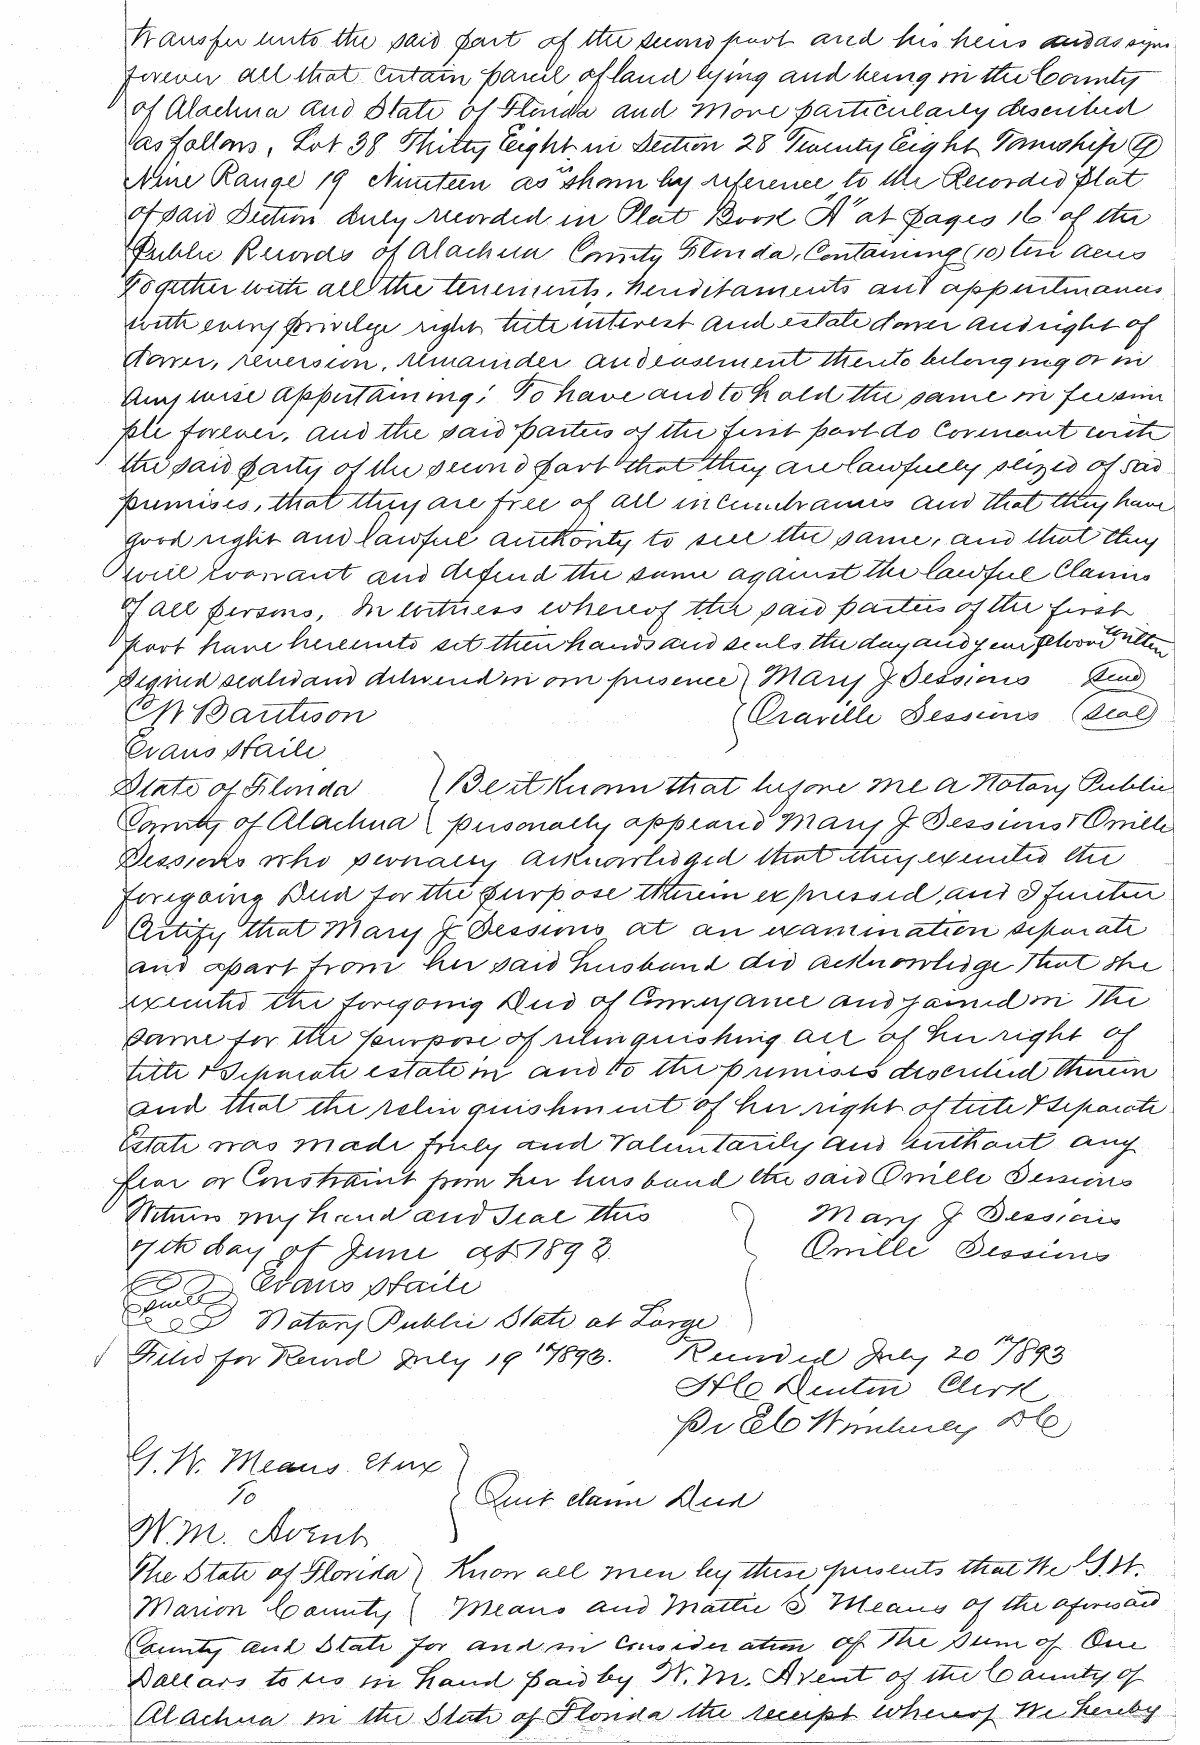 transfer unto the said part of the second part and his heirs and assigns
forever all that certain parcel of land lying and being in the County
of Alachua and State of Florida and more particularly described
as follows, Lot 38 Thirty Eight in Section 28 Twenty Eight Township 9
Nine Range 19 Nineteen as is shown by reference to the Recorded Plat
of said Section duly recorded in Plat Book "A" at pages 16 of the
Public Records of Alachua County Florida, Containing (10) ten acres
Together with all the tenements, hereditaments and appurtenances
with every privilege right title interest and estate dower and right of
dower, reversion, remainder and easement thereto belonging or in
any wise appertaining: To have and to hold the same in fee sim
ple forever, and the said parties of the first part do covenant with
the said party of the second part that they are lawfully seized of said
premises, that they are free of all incumbrances and that they have
good right and lawful authority to sell the same, and that they
will warrant and defend the same against the lawful claims
of all persons, In witness whereof the said parties of the first
part have hereunto set their hands and seals the day and year above written
Signed sealed and delivered in our presence } Mary J Sessions (Seal)
Evans Haile { Oraville Sessions (Seal)
State of Florida } Be it Known that before me a Notary Public
County of Alachua { personally appeared Mary J Sessions & Orville
Sessions who severally acknowledged that they executed the
foregoing Deed for the purpose therein expressed, and I further
Certify that Mary J Sessions at an examination separate
and apart from her said husband did acknowledge that she
executed the foregoing Deed of Conveyance and joined in the
same for the purpose of relinquishing all of her right of
title & separate estate in and to the premises described therein
and that the relinquishment of her right of title & separate
Estate was made freely and voluntarily and without any
fear or Constraint from her husband the said Orville Sessions
Witness my hand and seal this } Mary J Sessions
7th day of June AD 1893. Orville Sessions
Evans Haile
Notary Public State at Large
Filed for Record July 19th 1893. Recorded July 20th 1893
H C Denton Clerk
Pr E C Wimberly D C
G. W. Means et ux }
To } Quit claim Deed
W. M. Avent
The State of Florida } Know all men by these presents that We G. W.
Marion County { Means and Mattie S Means of the aforesaid
County and State for and in consideration of the sum of One
Dollars to us in hand paid by W. M. Avent of the County of
Alachua in the State of Florida the receipt whereof We hereby